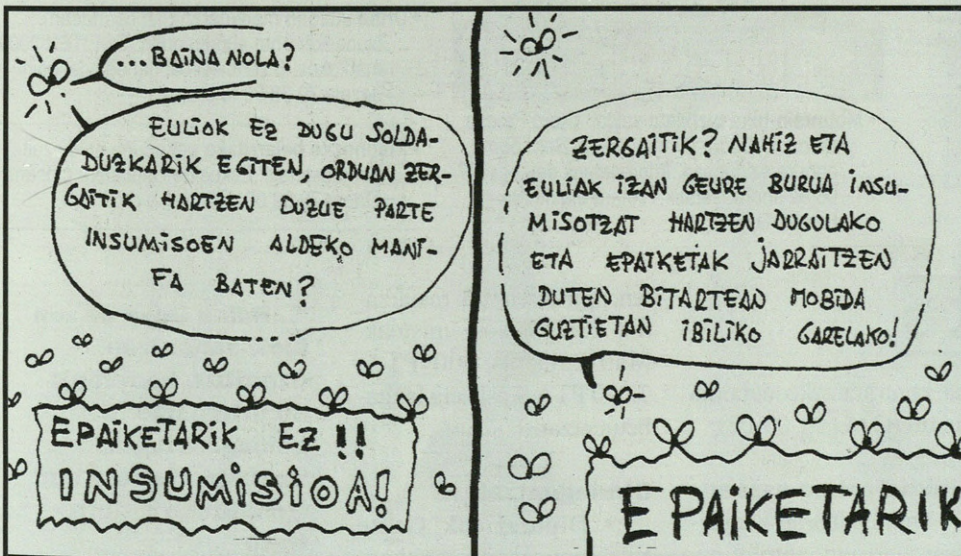 ...BAINA NOLA?
EULIOK EZ DUGU SOLDA-
DUZKARIK EGITEN, ORDUAN ZER-
GAITIK HARTZEN DUZUE PARTE
INSUMISOEN ALDEKO MANI-
FA BATEN?
EPAIKETARIK EZ!!
INSUMISIOA!
ZERGAITIK? NAHIZ ETA
EULIAK IZAN GEURE BURUA INSU-
MISOTZAT HARTZEN DUGULAKO
ETA EPAIKETAK JARRAITZEN
DUTEN BITARTEAN MOBIDA
GUZTIETAN IBILIKO GARELAKO!
EPAIKETARIK